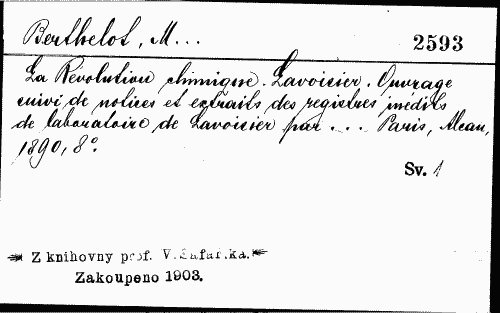 Berthelot, M...
2593
La Révolution chimique. Lavoisier. Ouvrage
suivi de notices et extraits des registres inédits
de laboratoire de Lavoisier par ... Paris, Alcan,
1890, 8°.
Sv. 1
Z knihovny prof. V. Šafaříka.
Zakoupeno 1903.